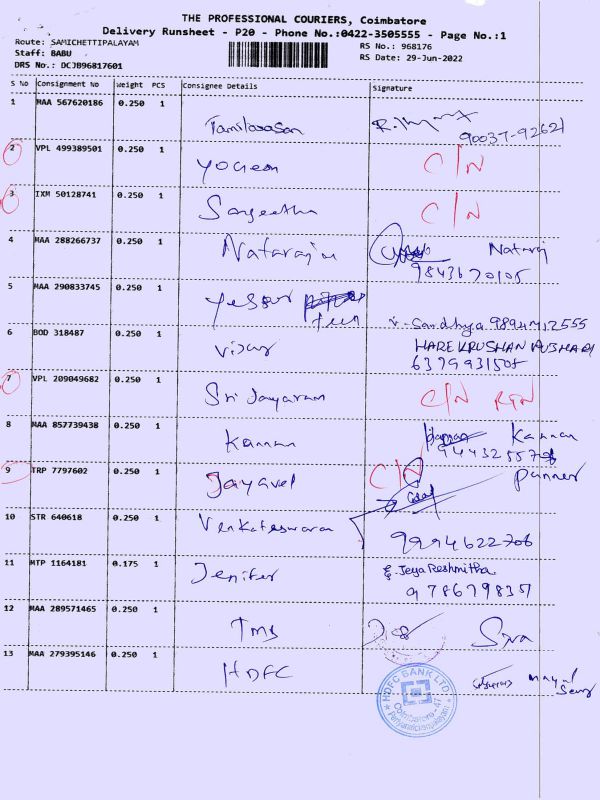 THE PROFESSIONAL COURIERS, Coimbatore
Delivery Runsheet - P20 - Phone No.:0422-3505555 - Page No.:1
Route: SAMICHETTIPALAYAM RS No.: 968176
Staff: BABU RS Date: 29-Jun-2022
DRS No.: DCJB96817601
S No Consignment No Weight PCS Consignee Details Signature
1 MAA 567620186 0.250 1
Tamilarasan 90037-92621
2 VPL 499389501 0.250 1 C/N
Yogesh
3 IXM 50128741 0.250 1 C/N
Sangeetha
4 MAA 288266737 0.250 1 Nataraju Nataraj
9843670105
5 MAA 290833745 0.250 1
6 BOD 318487 0.250 1 HAREKRUSHAN PUJHARI
Vijay
7 VPL 209049682 0.250 1 C/N RTN
Sri Jayaram
8 MAA 857739438 0.250 1 Kannan
Kannan
9 TRP 7797602 0.250 1 C/N
Jayavel Panner
10 STR 640618 0.250 1
Venkateswaran 9994622706
11 MTP 1164181 0.175 1 Jeya Reshmitha
Jenifer
12 MAA 289571465 0.250 1
TMB Siva
13 MAA 279395146 0.250 1
HDFC
HDFC BANK LTD
Coimbatore-47
Periyanaickenpalayam